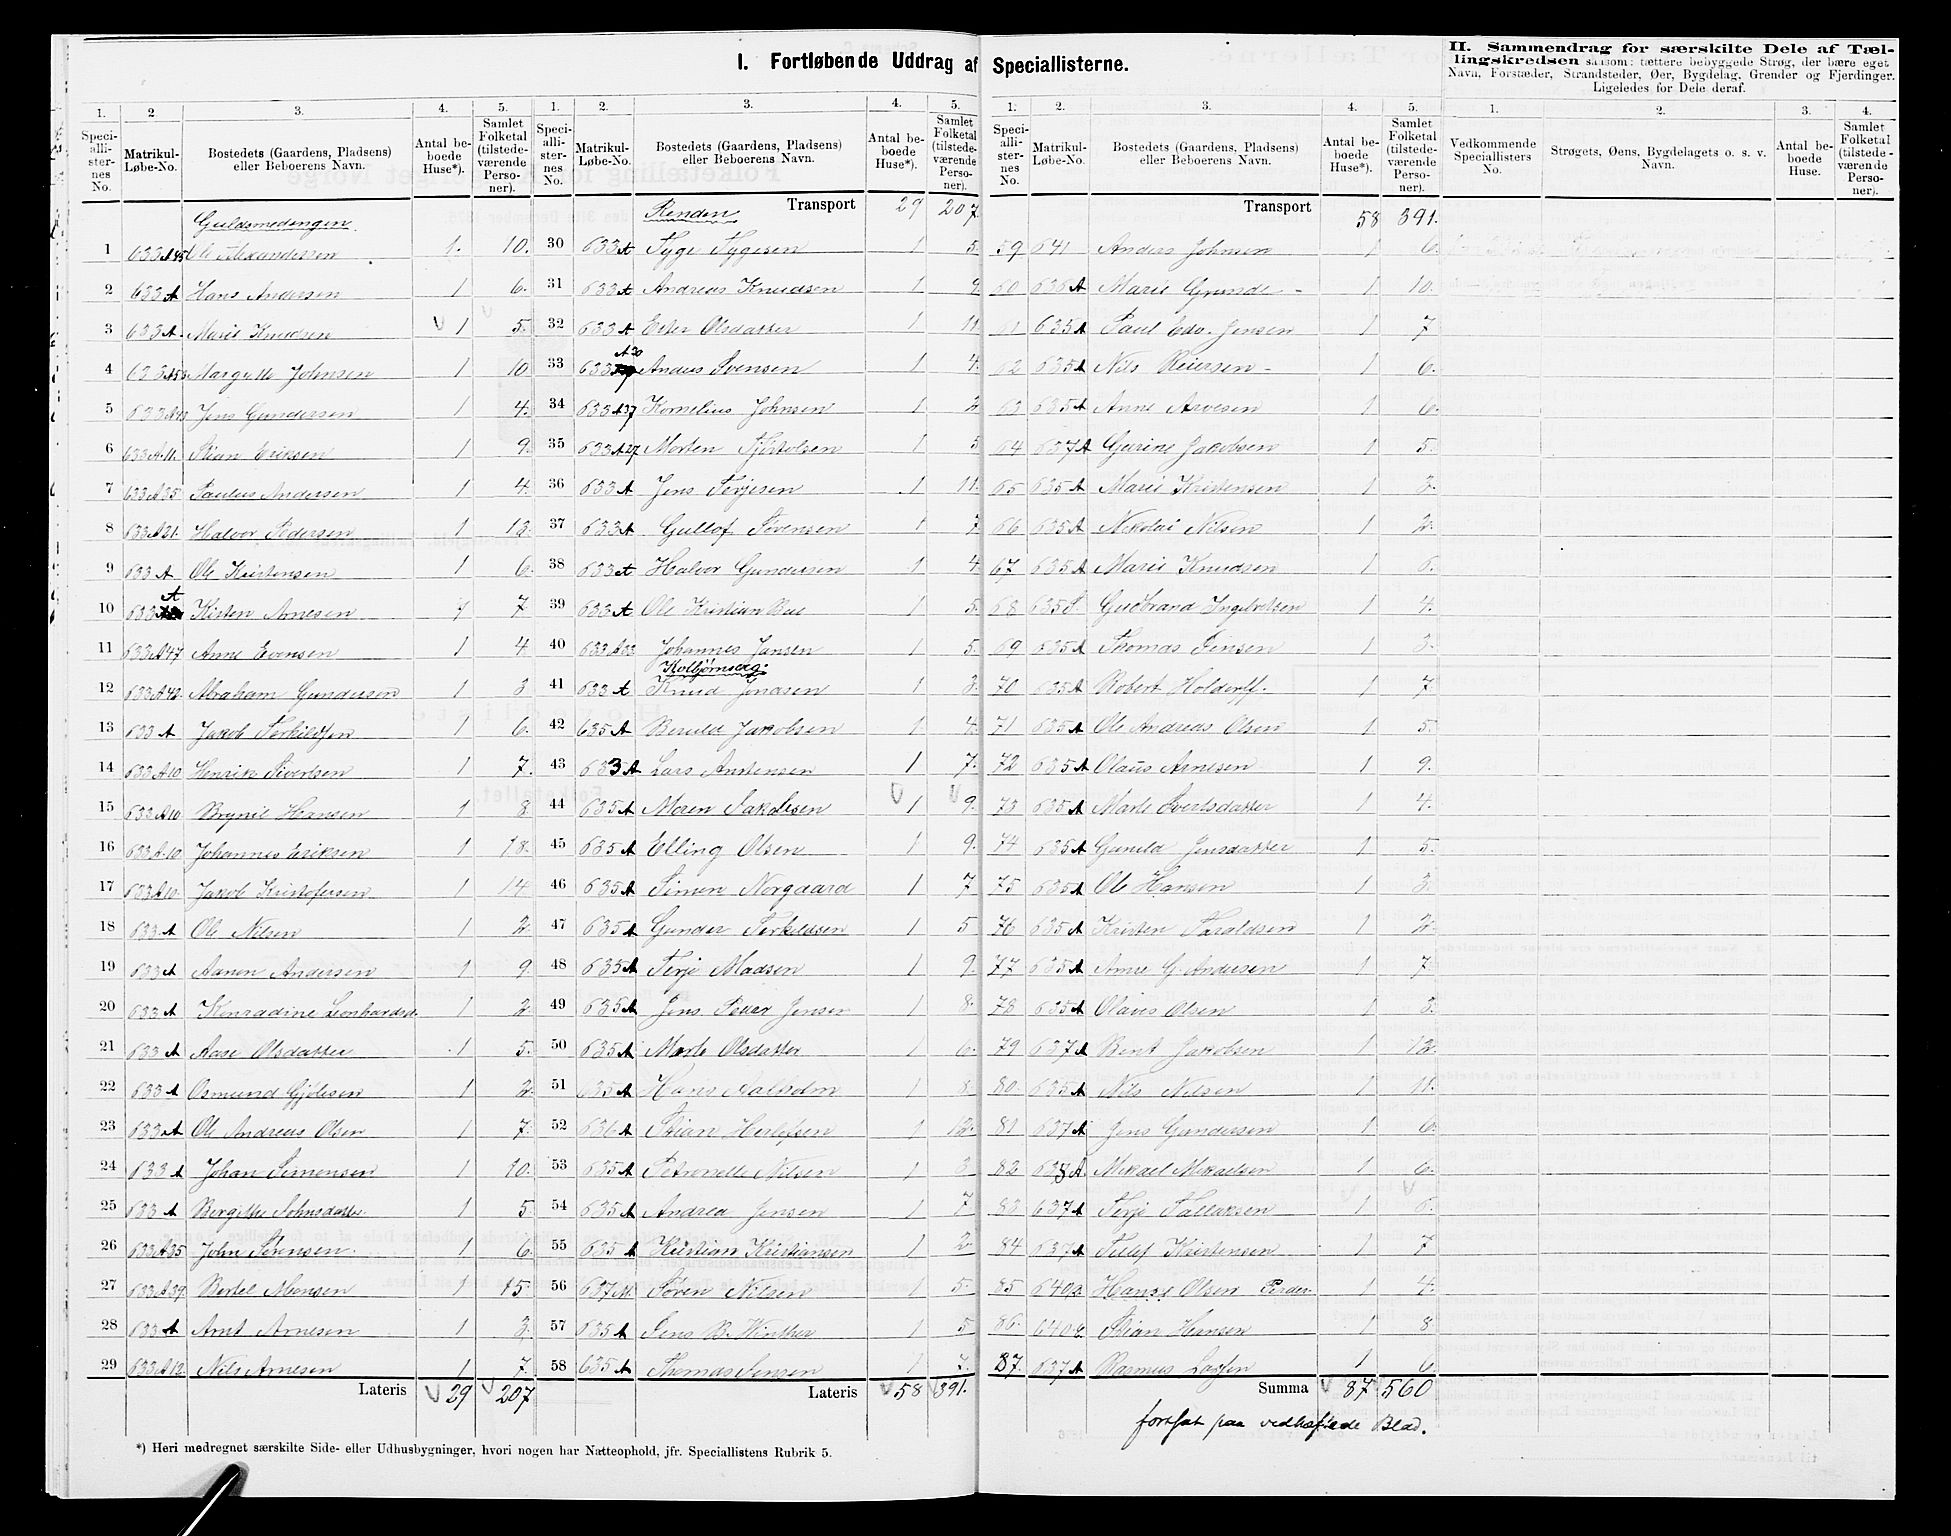 I. Fortløbende Uddrag af Speciallisterne.
II. Sammendrag for særskilte Dele af Tæl-
lingskredsen saasom: tættere bebyggede Strøg, der bære eget
Navn, Forstæder, Strandsteder, Øer, Bygdelag, Grender og Fjerdinger.
Ligeledes for Dele deraf.
1. 2. 3. 4. 5.
Speci-alli-ster-nes No. Matrikul-Løbe-No. Bostedets (Gaardens, Pladsens) eller Beboerens Navn. Antal be-boede Huse*). Samlet Folketal (tilstede-værende Perso-ner).
Guldsmedengen
1 633 A45 Ole Alexandersen 1. 10.
2 633 A Hans Andersen 1 6.
3 633 A. Marie Knudsen 1 5.
4 Margrethe Johnsen 1 10
5 Jens Gundersen 1 4.
6 633 A.11. Stian Eriksen 1 9.
7 633 A35 Paulus Andersen 1 4.
8 633 A21. Halvor Pedersen 1
9 633 A Ole Kristensen 1 6.
10 633 A Kirsten Arnesen 1 7.
11 633 A47 Anne Evensen 1 4
12 Abraham Gundersen 1 3
13 633 A Jakob Terkildsen 1 6.
14 633 A10 Henrik Sivertsen 1 7.
15 633 A10 Brynil Hansen 1 8
16 633 A.10 Johannes Eriksen 1 18.
17 633 A10. Jakob Kristofersen 1 14
18 633 A Ole Nilsen 1 2.
19 633 A Aanen Andersen 1 9.
20 633 A Konradine Leonhardsd. 1 2.
21 633 A Aase Olsdatter 1 5.
22 633 A Osmund 1 2.
23 633 A Ole Andreas Olsen 1 7.
24 633 A Johan Simonsen 1 10.
25 633 A Bergitte Johnsdatter. 1 5.
26 633 A35 John Sørensen. 1 6.
27 633 A39. Bertel Monsen 1 15.
28 633 A Arnt Arnesen 1 3.
29 633 A12. Nils Arnesen 1 7.
Lateris 29 207
1. 2. 3. 4. 5.
Speci-alli-ster-nes No. Matrikul-Løbe-No. Bostedets (Gaardens, Pladsens) eller Beboerens Navn. Antal be-boede Huse*). Samlet Folketal (tilstede-værende Perso-ner).
Renden Transport 29 207.
30 633 A Tyge Tygesen 1 5.
31 633 A Andreas Knudsen 1 9.
32 633 A Ester Olsdatter 1 11.
33 633 A30 Anders Svensen 1 4.
34 633 A37 Kornelius Johnsen 1 2
35 633 A27 Morten 1 5
36 633 A Jens Terjesen 1 11.
37 633 A Gullof Sørensen 1 7.
38 633 A Halvor Gundersen 1 4.
39 633 A Ole Kristian 1 5.
40 633 A33 Johannes Jansen 1 5.
Kolbjørnseg.
41 633 A Knud Jonasen 1 3.
42 635 A Jakobsen 1 4.
43 633 A Lars Anstensen 1 7.
44 635 A Maren Jakobsen 1 9.
45 635 A Elling Olsen 1 9.
46 635 A Simen Norgaard 1 7
47 635 A Gunder Terkildsen 1 5
48 635 A Terje Madsen 1 9.
49 635 A Jens Peder Jensen 1 8.
50 635 A Marte Olsdatter 1 6.
51 635 A Hans 1 8.
52 636 A Stian Herlofsen 1 12.
53 635 A Petronelle Nilsen 1 3
54 635 A Andrea Jensen 1 7
55 635 A Kristian Kristiansen 1 2.
56 637 Søren Nilsen 1 5.
57 635 A Jens B. Winther 1 5
58 635 A Thomas Jensen 1 7.
Lateris 58 391.
1. 2. 3. 4. 5.
Speci-alli-ster-nes No. Matrikul-Løbe-No. Bostedets (Gaardens, Pladsens) eller Beboerens Navn. Antal be-boede Huse*). Samlet Folketal (tilstede-værende Perso-ner).
Transport 58 391.
59 641 Anders Johnsen 1 6.
60 Marie 1 10.
61 635 A Paul Edv. Jensen 1 7
62 635 A Nils Reiersen 1 6.
63 635 A Anne Arvesen 1 6.
64 637 A Gurine Jacobsen 1 5.
65 635 A Marie Kristensen 1 3.
66 635 A Nikolai Nilsen 1 2.
67 635 A Marie Knudsen 1 6.
68 635 Gudbrand Ingebretsen 1 4.
69 635 A Thomas Jensen 1 3.
70 635 A Robert Holdorff. 1 7.
71 635 A Ole Andreas Olsen 1 5.
72 635 A Olaus Arnesen 1 9.
73 635 A Marte Evertsdatter 1 4.
74 635 A Gunild Jensdatter 1 5.
75 635 A Ole Hansen 1 3.
76 635 A Kristen Taraldsen 1 2.
77 635 A Anne G. Andersen 1 7.
78 635 A Olaves Olsen 1 3.
79 637 A Bent Jakobsen 1
80. 635 A Nils Nilsen 1 11.
81 637 A Jens Gundersen 1 6.
82 Mikael Mikaelsen 1 6.
83 637 A Terje Tallaksen 1 6.
84 637 A Tellef Kristensen 1 7
85 640 Hans Olsen 1 4.
86. 640 Stian Hansen 1 8
87. 637 A Rasmus Lassen 1 6.
Summa 87 560
fortsat paa vedhæftede Blad.
1. 2. 3. 4.
Vedkommende Speciallisters No. Strøgets, Øens, Bygdelagets o. s. v. Navn. Antal be-boede Huse. Samlet Folketal (tilstede-værende Perso-ner).
*) Heri medregnet særskilte Side- eller Udhusbygninger, hvori nogen har Natteophold, jfr. Speciallistens Rubrik 5.